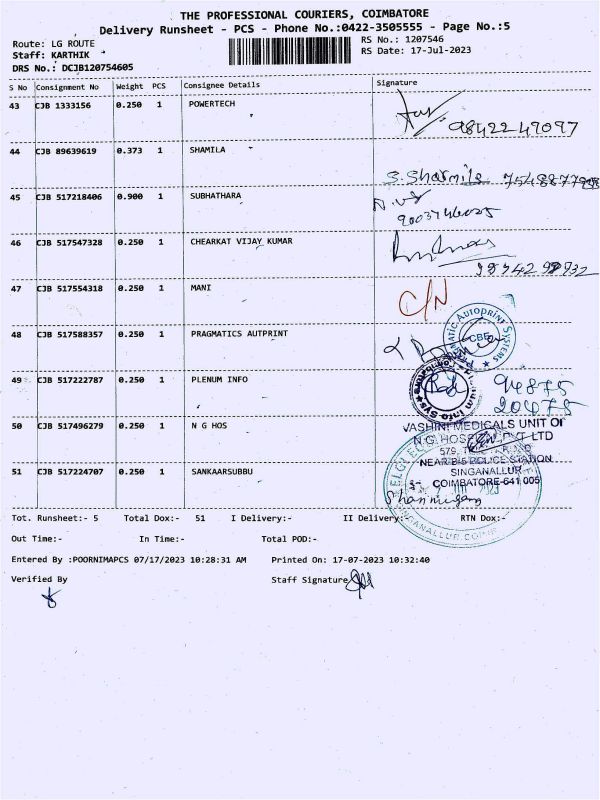 THE PROFESSIONAL COURIERS, COIMBATORE
Delivery Runsheet - PCS - Phone No.:0422-3505555 - Page No.:5
Route: LG ROUTE
RS No.: 1207546
Staff: KARTHIK
RS Date: 17-Jul-2023
DRS No.: DCJB120754605
S No Consignment No Weight PCS Consignee Details Signature
43 CJB 1333156 0.250 1 POWERTECH
9842249097
44 CJB 89639619 0.373 1 SHAMILA
S. Sharmila
45 CJB 517218406 0.900 1 SUBHATHARA
46 CJB 517547328 0.250 1 CHEARKAT VIJAY KUMAR
47 CJB 517554318 0.250 1 MANI
C/N
48 CJB 517588357 0.250 1 PRAGMATICS AUTPRINT
CBE
49 CJB 517222787 0.250 1 PLENUM INFO
94875
20475
50 CJB 517496279 0.250 1 N G HOS
VASHINI MEDICALS UNIT OF
N.G. HOSPITAL PVT LTD
579,
NEAR B-5 POLICE STATION
SINGANALLUR
COIMBATORE-641 005
51 CJB 517224707 0.250 1 SANKAARSUBBU
Shanmugam
Tot. Runsheet:- 5 Total Dox:- 51 I Delivery:- II Delivery:- RTN Dox:-
Out Time:- In Time:- Total POD:-
Entered By :POORNIMAPCS 07/17/2023 10:28:31 AM Printed On: 17-07-2023 10:32:40
Verified By Staff Signature